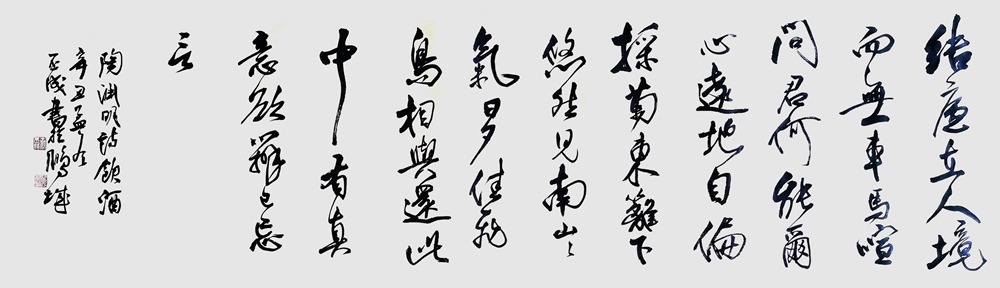 結廬在人境
而無車馬喧
問君何能爾
心遠地自偏
採菊東籬下
悠然見南山〻
氣日夕佳飛
鳥相與還此
中有真
意欲辨已忘
言
陶淵明詩飲酒
辛丑孟冬
正成書於鵬城